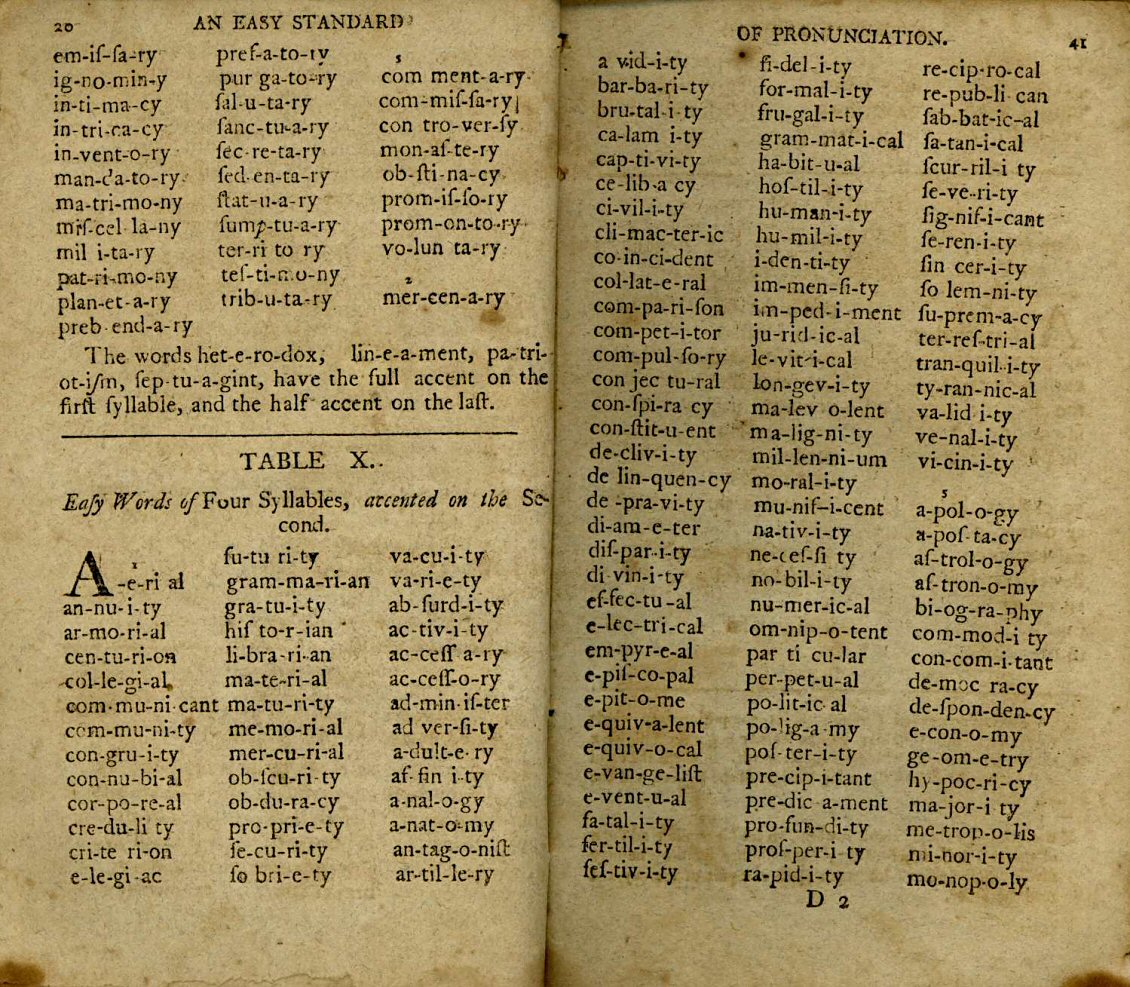 20 AN EASY STANDARD
em-iſ-ſa-ry preſ-a-to-ry 5
ig-no-min-y pur ga-to-ry com ment-a-ry
in-ti-ma-cy ſal-u-ta-ry com-miſ-ſa-ry
in-tri-ca-cy ſanc-tu-a-ry con tro-ver-ſy
in-vent-o-ry ſec-re-ta-ry mon-aſ-te-ry
man-da-to-ry ſed-en-ta-ry ob-ſti-na-cy
ma-tri-mo-ny ſtat-u-a-ry prom-iſ-ſo-ry
miſ-cel la-ny ſump-tu-a-ry prom-on-to-ry
mil i-ta-ry ter-ri to ry vo-lun ta-ry
pat-ri-mo-ny teſ-ti-mo-ny 2
plan-et-a-ry trib-u-ta-ry mer-cen-a-ry
preb-end-a-ry
The words het-e-ro-dox, lin-e-a-ment, pa-tri-
ot-iſm, ſep-tu-a-gint, have the full accent on the
firſt ſyllable, and the half accent on the laſt.
TABLE X.
Eaſy Words of Four Syllables, accented on the Se-
cond.
1 ſu-tu ri-ty va-cu-i-ty
A-e-ri al gram-ma-ri-an va-ri-e-ty
an-nu-i-ty gra-tu-i-ty ab-ſurd-i-ty
ar-mo-ri-al hiſ to-r-ian ac-tiv-i-ty
cen-tu-ri-on li-bra-ri-an ac-ceſſ a-ry
col-le-gi-al ma-te-ri-al ac-ceſſ-o-ry
com-mu-ni cant ma-tu-ri-ty ad-min-iſ-ter
com-mu-ni-ty me-mo-ri-al ad ver-ſi-ty
con-gru-i-ty mer-cu-ri-al a-dult-e-ry
con-nu-bi-al ob-ſcu-ri-ty af-fin i-ty
cor-po-re-al ob-du-ra-cy a-nal-o-gy
cre-du-li ty pro-pri-e-ty a-nat-o-my
cri-te ri-on ſe-cu-ri-ty an-tag-o-niſt
e-le-gi-ac ſo bri-e-ty ar-til-le-ry
OF PRONUNCIATION. 41
a vid-i-ty fi-del-i-ty re-cip-ro-cal
bar-ba-ri-ty for-mal-i-ty re-pub-li can
bru-tal-i ty fru-gal-i-ty ſab-bat-ic-al
ca-lam i-ty gram-mat-i-cal ſa-tan-i-cal
cap-ti-vi-ty ha-bit-u-al ſcur-ril-i ty
ce-lib-a cy hoſ-til-i-ty ſe-ve-ri-ty
ci-vil-i-ty hu-man-i-ty ſig-nif-i-cant
cli-mac-ter-ic hu-mil-i-ty ſe-ren-i-ty
co-in-ci-dent i-den-ti-ty ſin cer-i-ty
col-lat-e-ral im-men-ſi-ty ſo lem-ni-ty
com-pa-ri-ſon im-ped-i-ment ſu-prem-a-cy
com-pet-i-tor ju-rid-ic-al ter-reſ-tri-al
com-pul-ſo-ry le-vit-i-cal tran-quil-i-ty
con jec tu-ral lon-gev-i-ty ty-ran-nic-al
con-ſpi-ra cy ma-lev o-lent va-lid i-ty
con-ſtit-u-ent ma-lig-ni-ty ve-nal-i-ty
de-cliv-i-ty mil-len-ni-um vi-cin-i-ty
de lin-quen-cy mo-ral-i-ty 5
de-pra-vi-ty mu-nif-i-cent a-pol-o-gy
di-am-e-ter na-tiv-i-ty a-poſ-ta-cy
diſ-par-i-ty ne-ceſ-ſi ty aſ-trol-o-gy
di vin-i-ty no-bil-i-ty aſ-tron-o-my
ef-fec-tu-al nu-mer-ic-al bi-og-ra-phy
e-lec-tri-cal om-nip-o-tent com-mod-i ty
em-pyr-e-al par ti cu-lar con-com-i-tant
e-piſ-co-pal per-pet-u-al de-moc ra-cy
e-pit-o-me po-lit-ic-al de-ſpon-den-cy
e-quiv-a-lent po-lig-a-my e-con-o-my
e-quiv-o-cal poſ-ter-i-ty ge-om-e-try
e-van-ge-liſt pre-cip-i-tant hy-poc-ri-cy
e-vent-u-al pre-dic-a-ment ma-jor-i ty
fa-tal-i-ty pro-fun-di-ty me-trop-o-lis
fer-til-i-ty proſ-per-i ty mi-nor-i-ty
feſ-tiv-i-ty ra-pid-i-ty mo-nop-o-ly
D 2